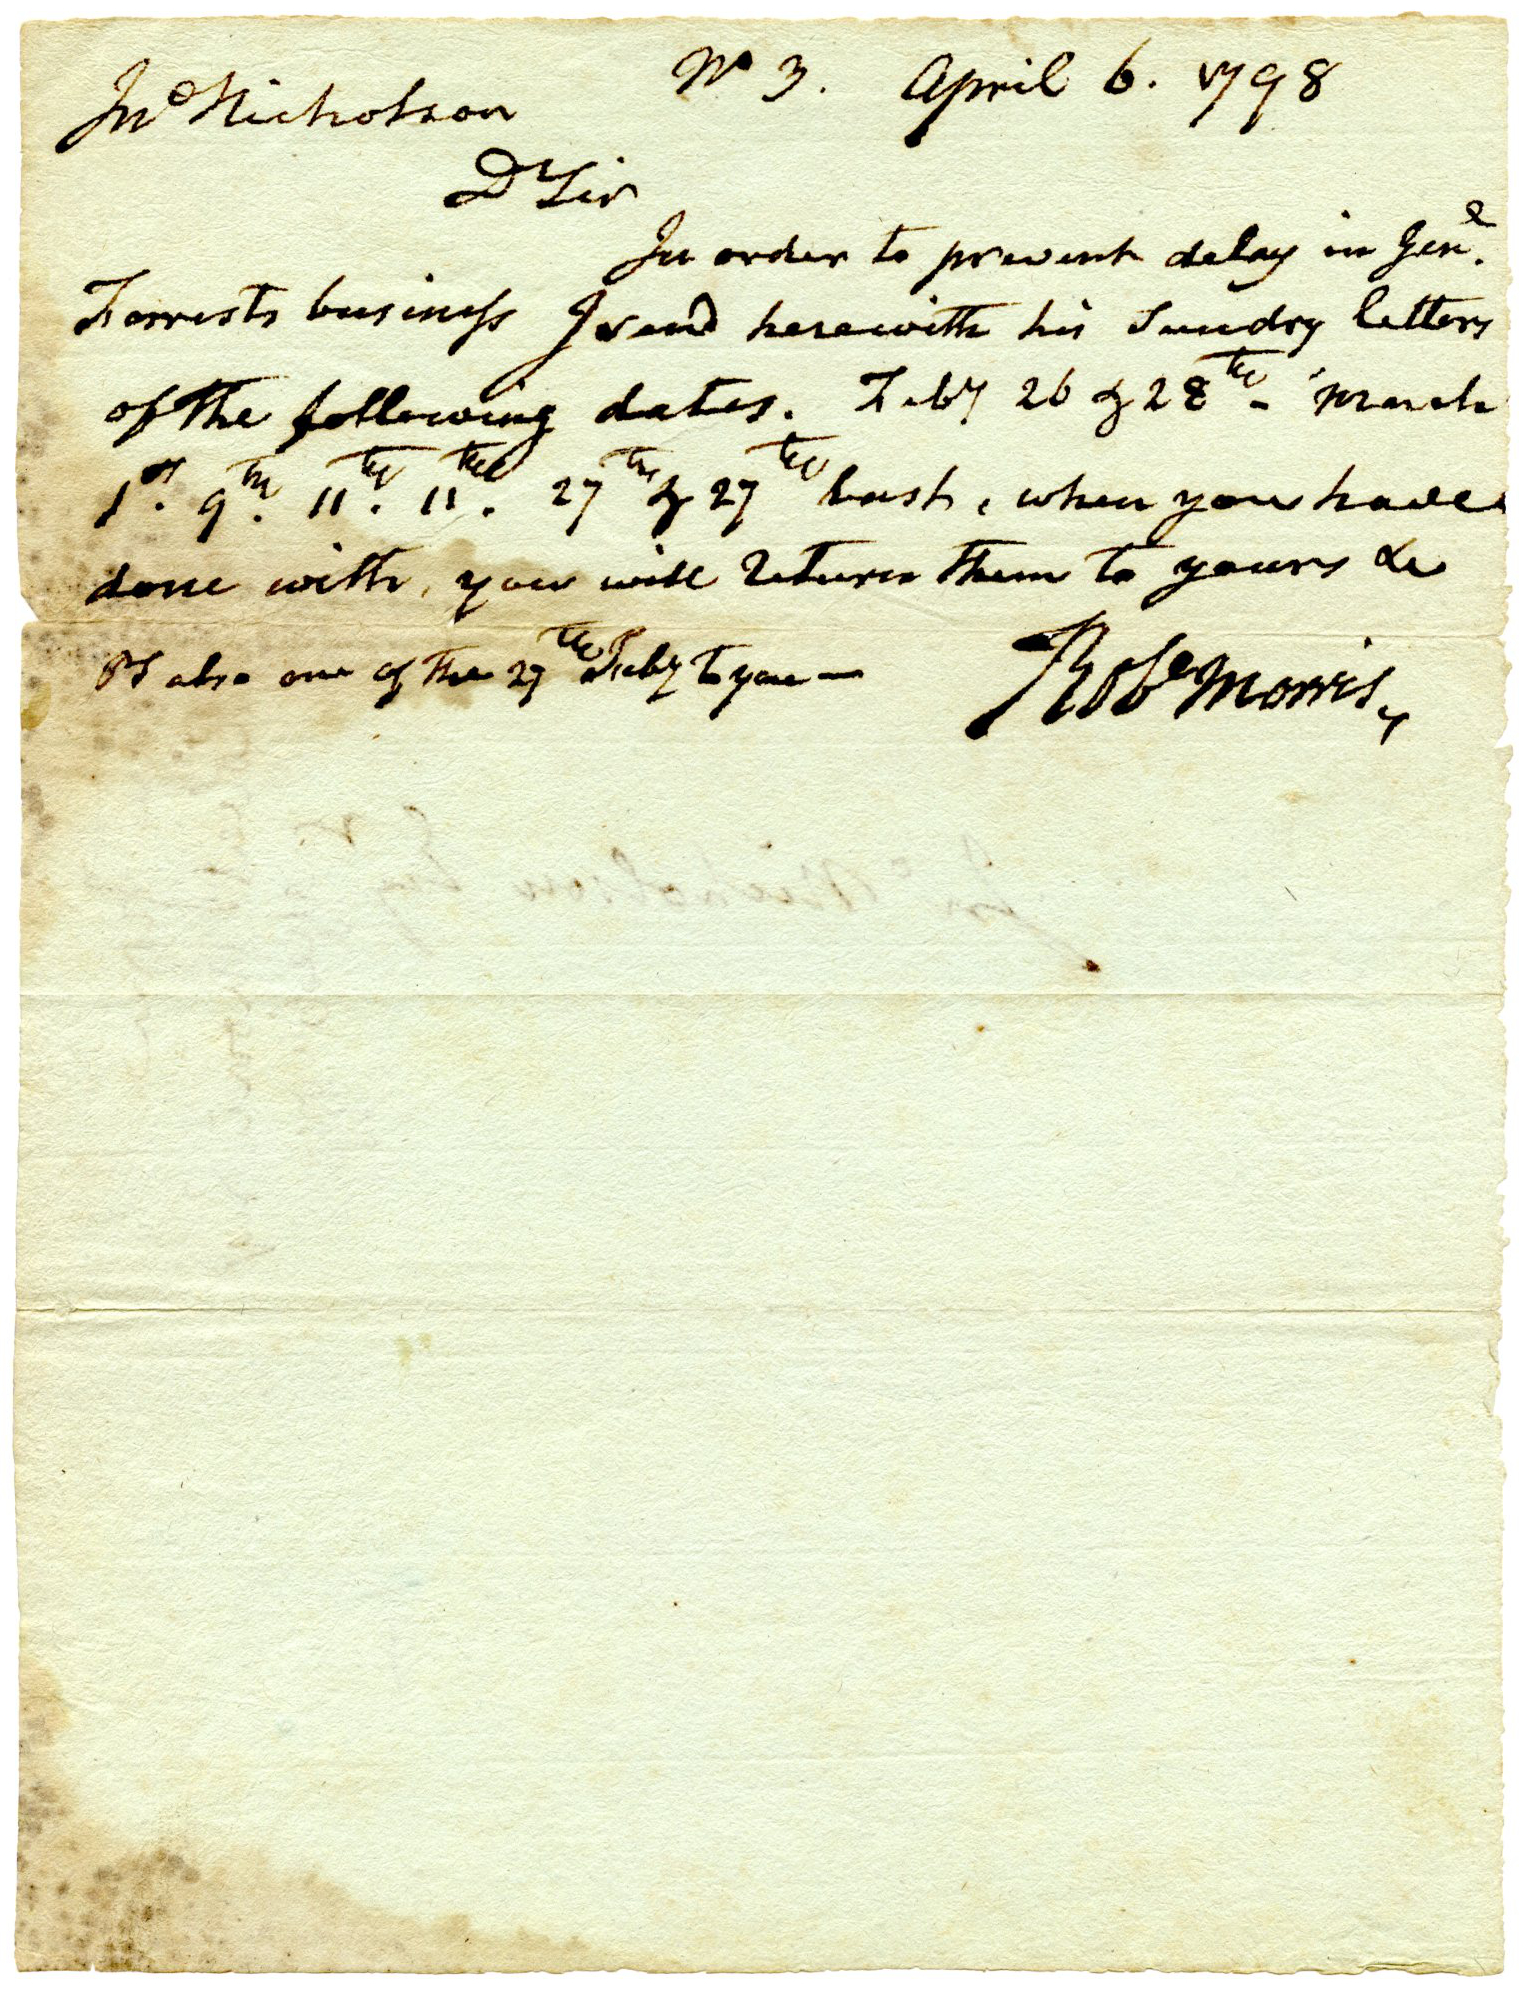 Nº 3. April 6. 1798
Jnº Nicholson
Dr Sir
In order to prevent delay in Genl.
Forrests business I send herewith his Sundry letters
of the following dates. Feby 26 & 28th - March
1st. 9th. 11th. 11th. 27th & 27th last, when you have
done with, you will return them to yours &c
PS also one of the 27th Feby to you —
Robt Morris
Jnº Nicholson Esq